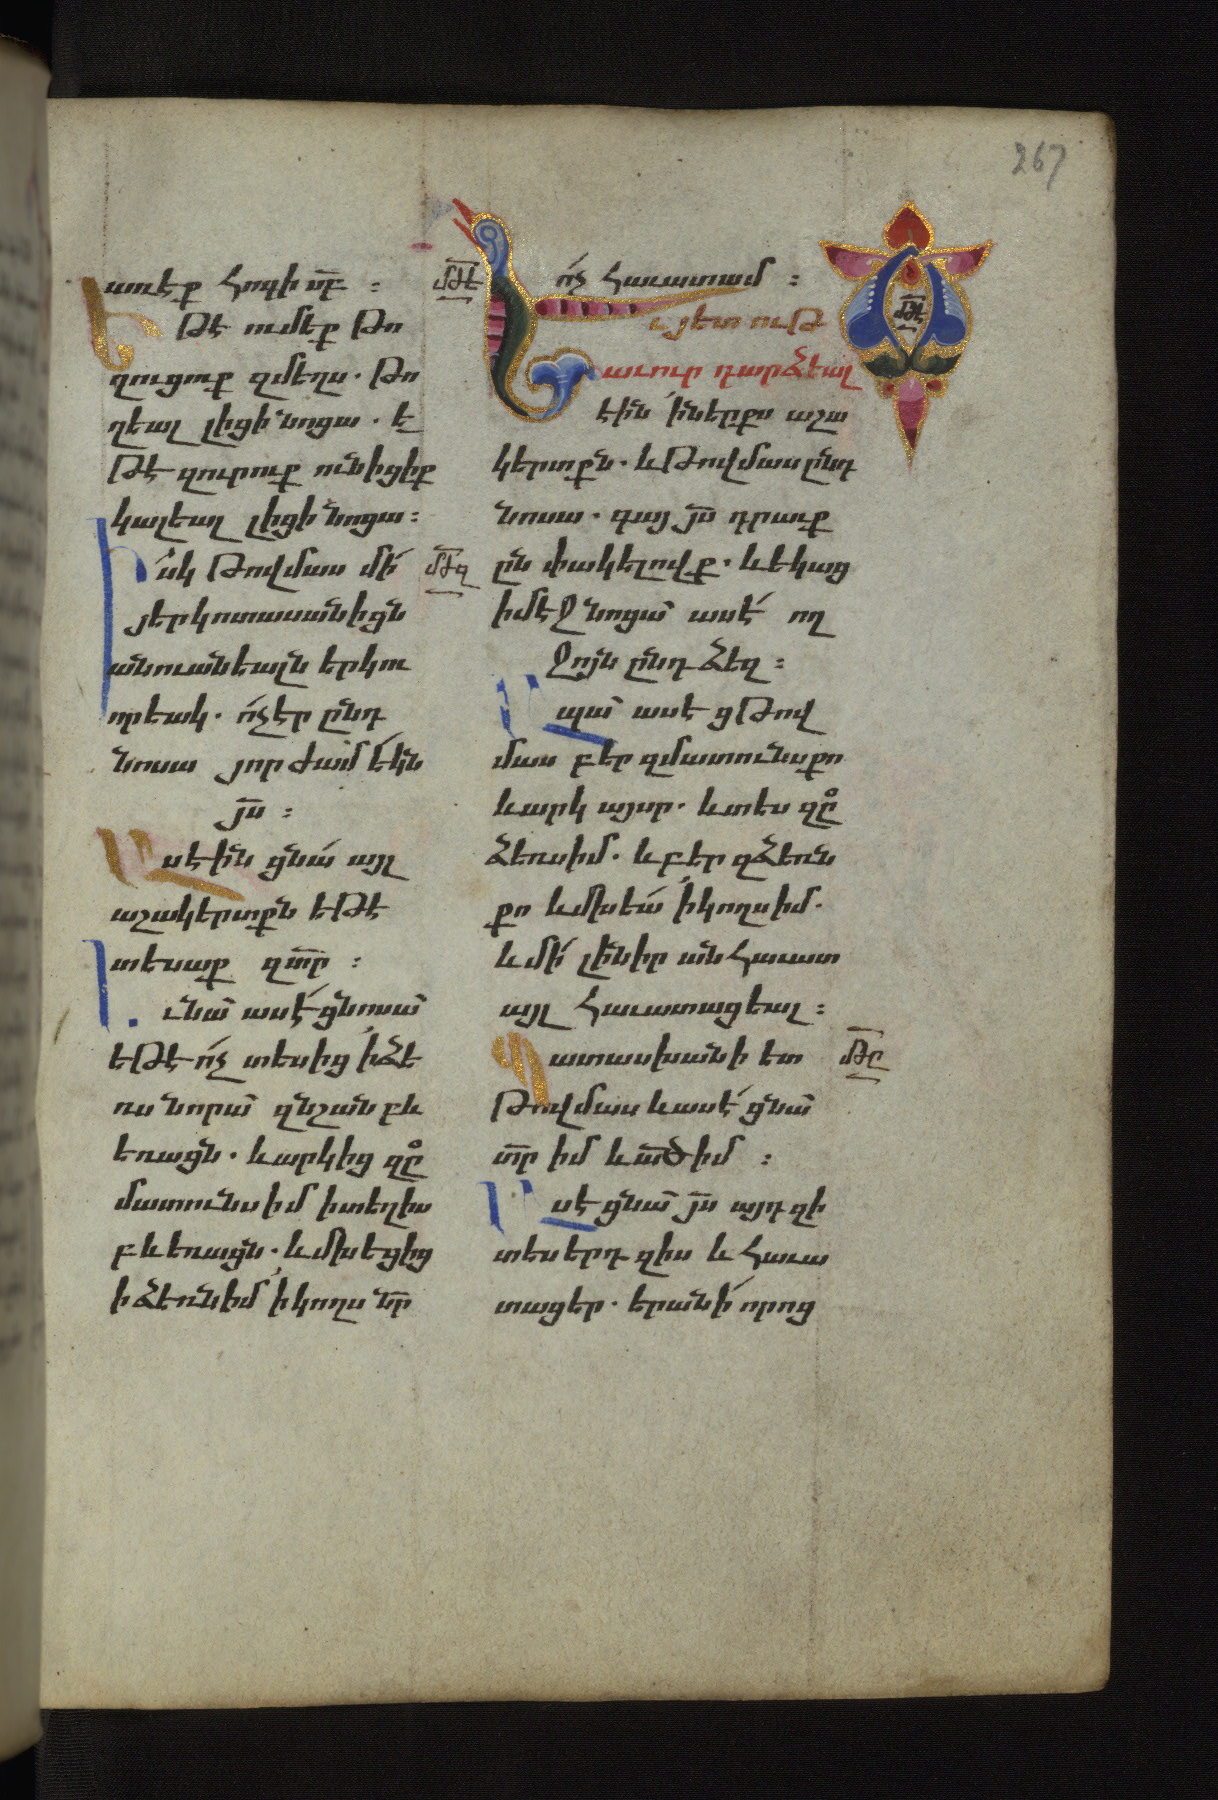 267
առէք հոգի սբ :
Եթէ ումեք թո
ղուցուք զմեղս . թո
ղեալ լիցի նոցա . և
թէ զուրուք ունիցիք
կալեալ լիցի նոցա :
Իսկ թովմաս մի՛
յերկոտասանիցն
անուանեալն երկու
որեակ . ո՛չ էր ընդ
նոսա յորժամ եկն
յս :
Ասեին ցնա՛ այլ
աշակերտքն եթէ
տեսաք զտր :
Եւ նա՛ ասէ՛ ցնոսա՛
եթէ ո՛չ տեսից ի ձե
ռս նորա՛ զնշան բև
եռացն . և արկից զը
մատունս իմ ի տեղիս
բևեռացն . և մխեցից
ի ձեռն իմ ի կողս նր
մժզ
մժէ
ո՛չ հաւատամ :
Եւ յետ ութ
աւուր դարձեալ
էին ի ներքս աշա
կերտքն . և թովմաս ընդ
նոսա . գայ յս դրաւք
ըն փակելովք . և եկաց
ի մէջ նոցա՛ ասէ՛ ող
ջոյն ընդ ձեզ :
Ապա՛ ասէ ց թով
մաս բեր զմատունս քո
և արկ այսր . և տես զը
ձեռս իմ . և բեր զձեռն
քո և մխեա՛ ի կողս իմ .
և մի՛ լինիր անհաւատ
այլ հաւատացեալ :
Պատասխանի ետ
թովմաս և ասէ՛ ցնա՛
տր իմ և ած իմ :
Ասէ ցնա՛ յս այդ զի
տեսեր դ զիս և հաւա
տացեր . երանի՛ որոց
մժէ
մժը